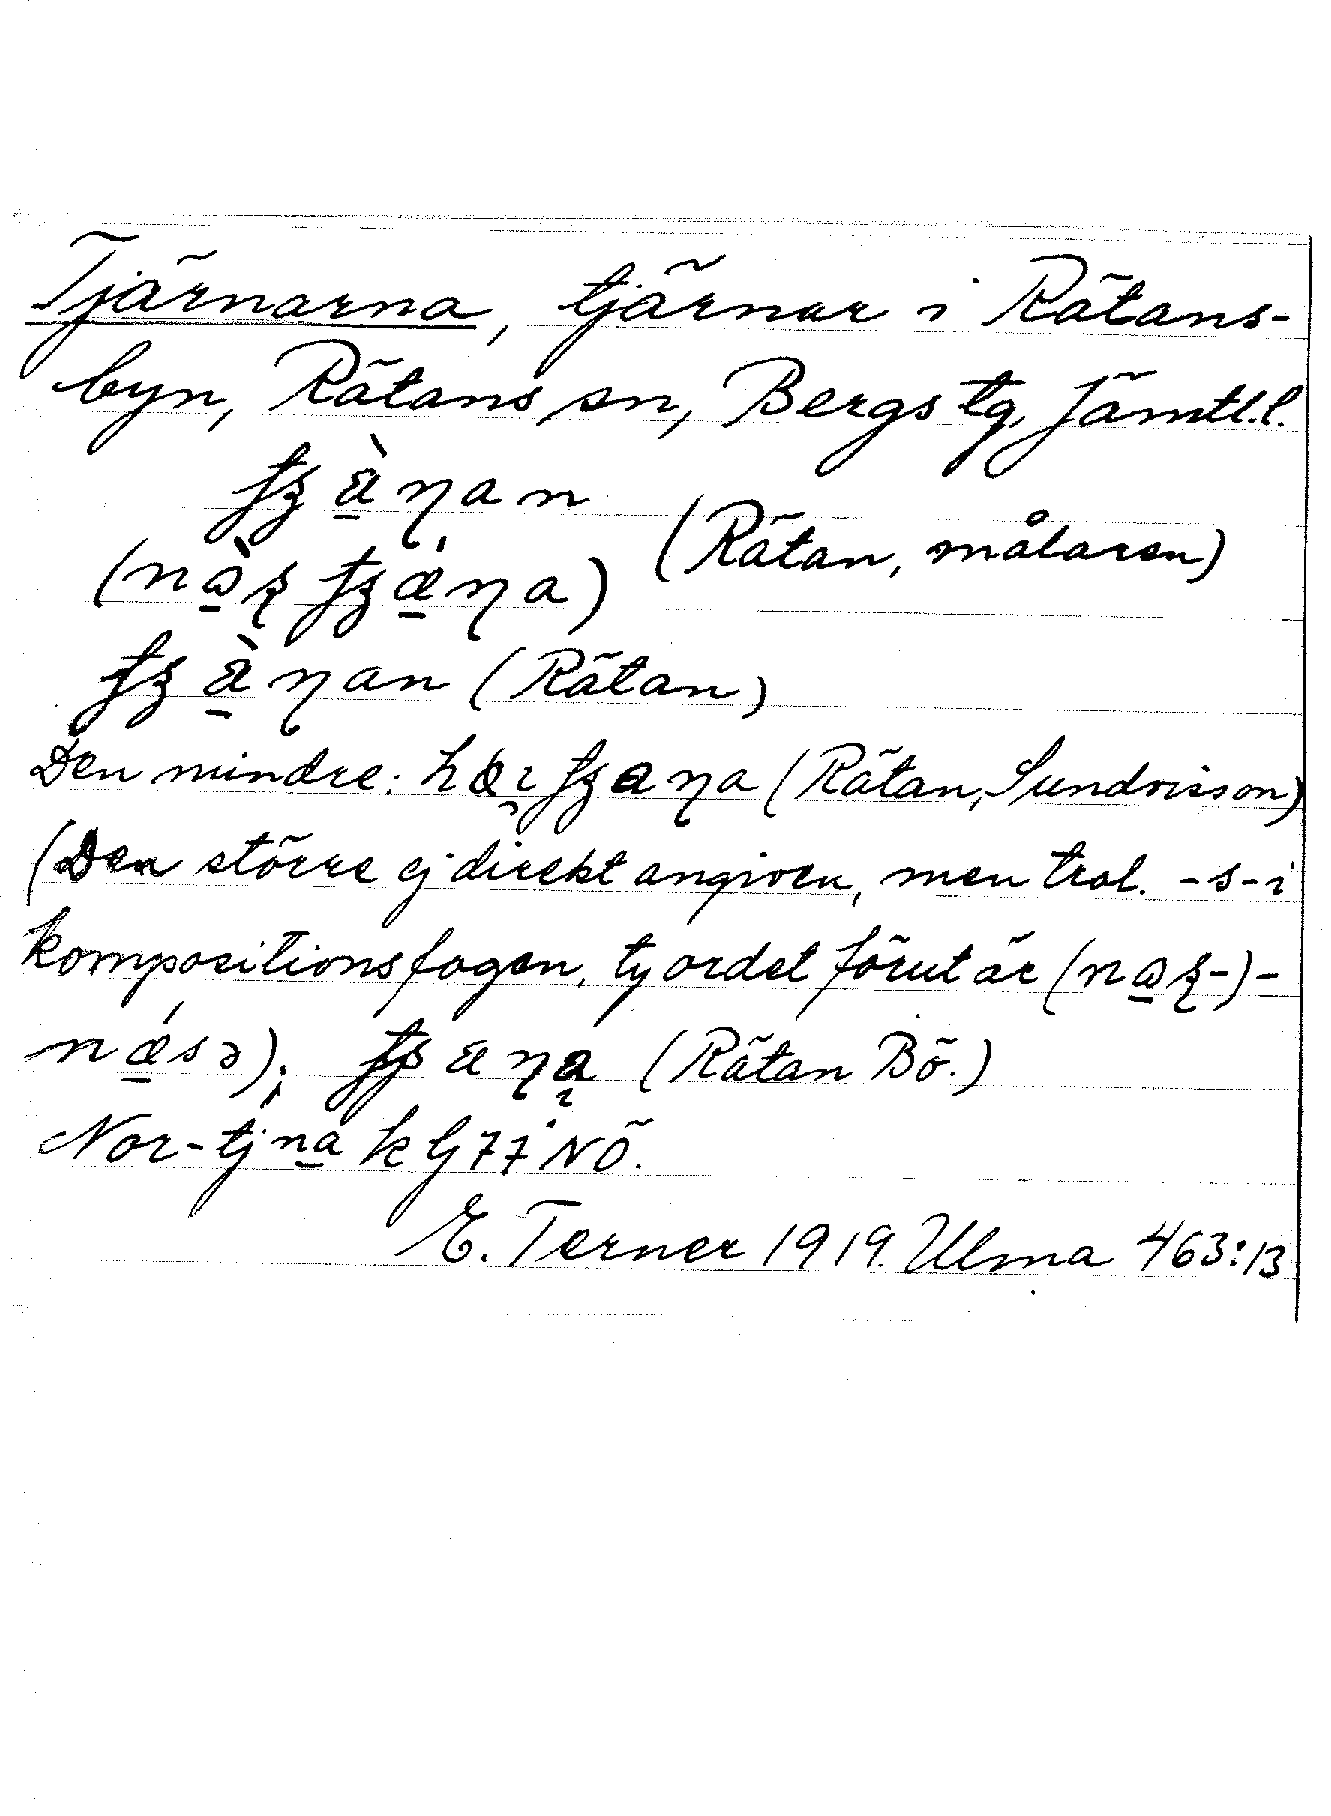 Tjärnarna, tjärnar i Rätans-
byn, Rätans sn, Bergs tg, Jämtl.l.
(Rätan, målaren)
(Rätan)
Den mindre: (Rätan, Sundvisson)
(Den större ej direkt angiven, men trol. -s- i
kompositionsfogen, ty ordet förut är
(Rätan Bö.)
Nor-tjna k Lj 77 i NÖ.
E. Terner 1919. Ulma 463:13